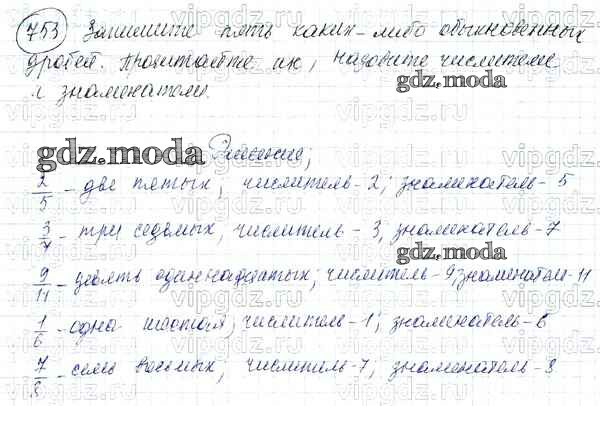 753 Запишите пять каких-либо обыкновенных
дробей. Прочитайте их, назовите числители
и знаменатели.
gdz.moda
gdz.moda Решение:
2/5 - две пятых; числитель - 2; знаменатель - 5
3/7 - три седьмых, числитель - 3, знаменатель - 7
gdz.moda
9/11 - девять одиннадцатых; числитель - 9; знаменатель - 11
1/6 - одна шестая; числитель - 1; знаменатель - 6
7/8 - семь восьмых, числитель - 7; знаменатель - 8.
vipgdz.ru